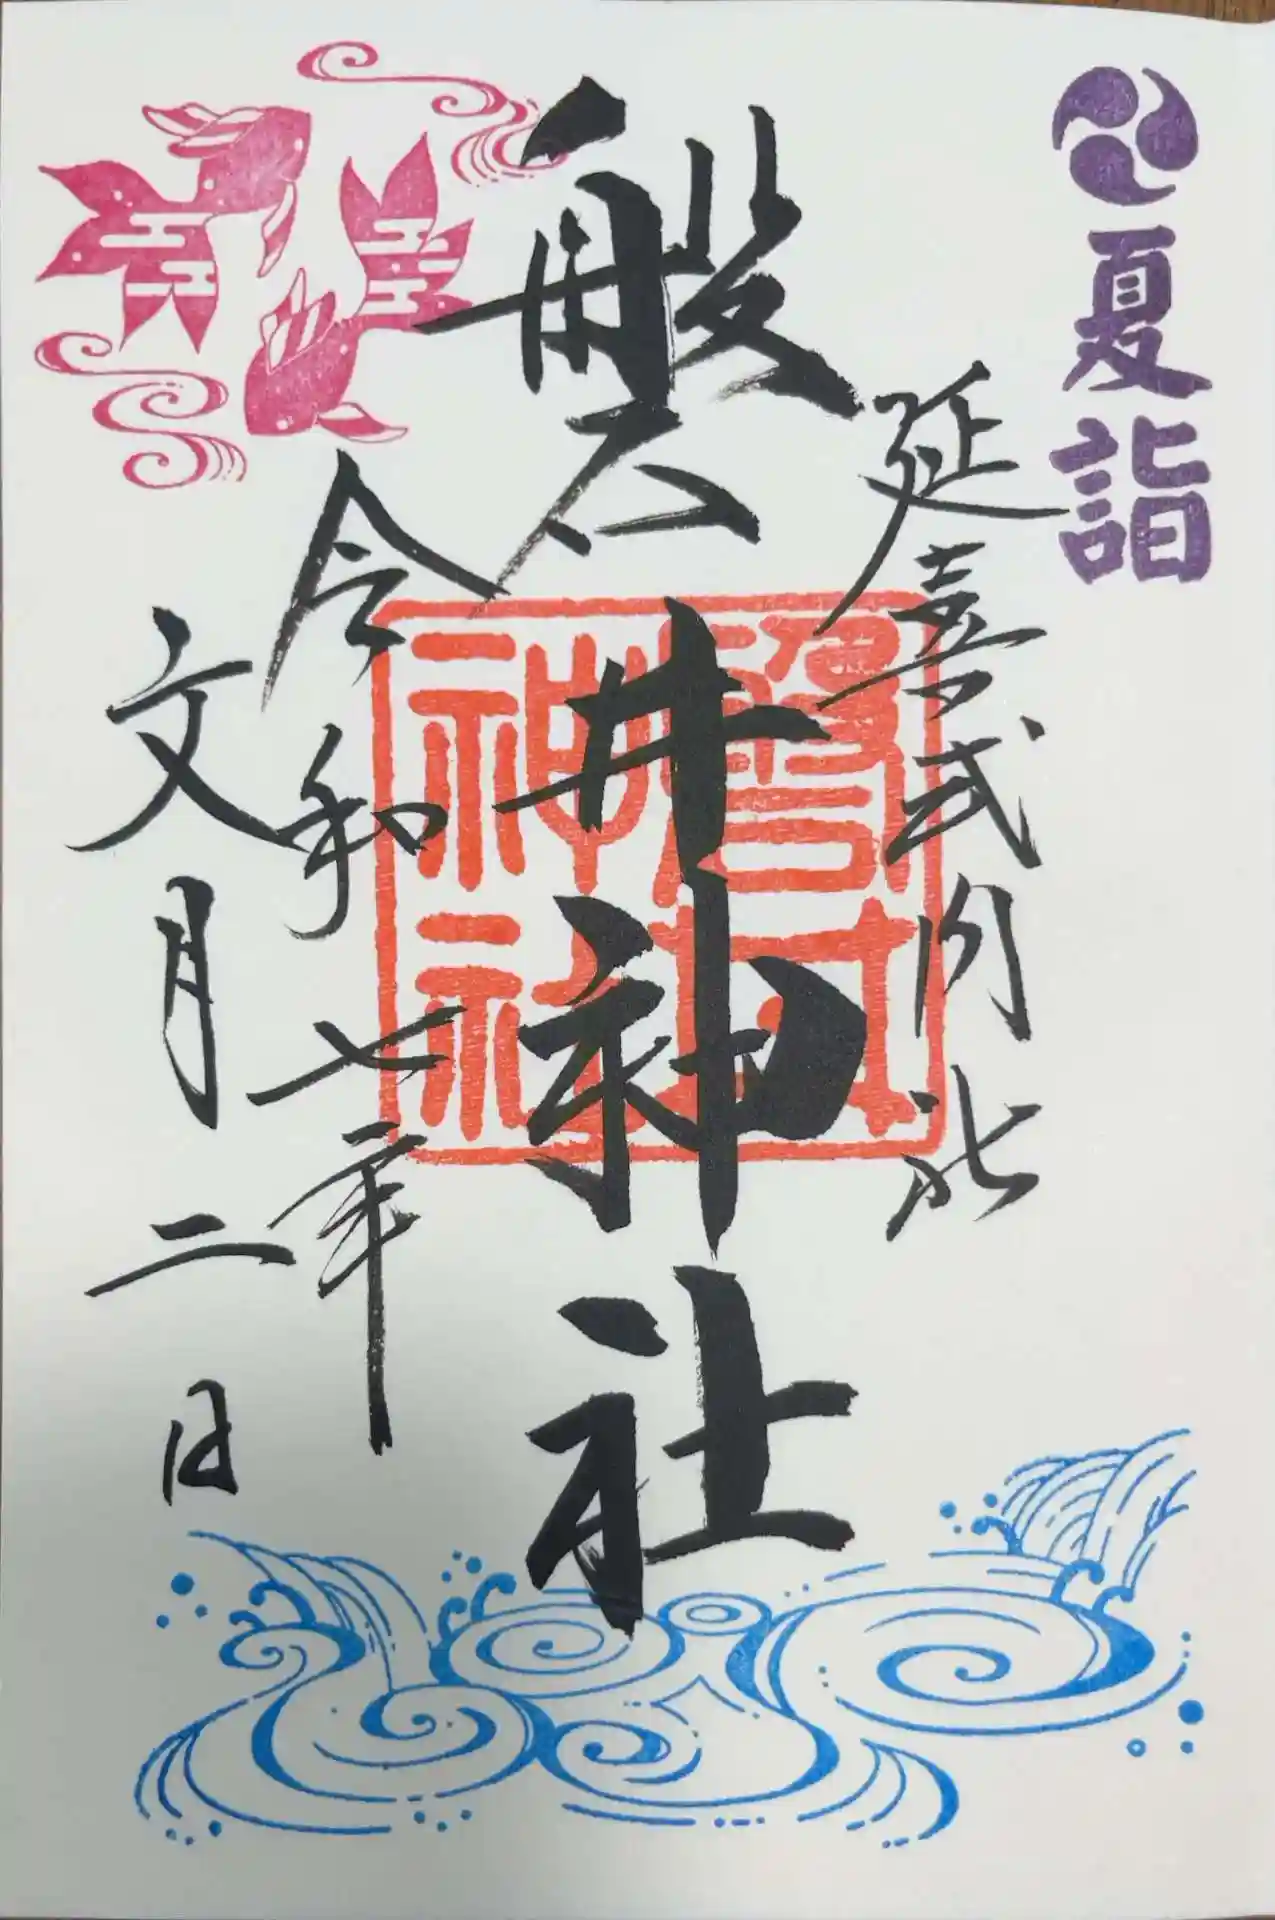 夏詣
延喜式内社
盤井神社
磐井神社
令和七年
文月二日